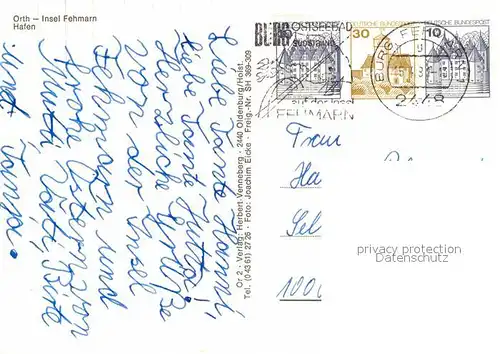 Orth – Insel Fehmarn
Hafen
Liebe Tante Hanni,
liebe Tante Jutta!
Herzliche Grüße
von der Insel
Fehmarn und
frohe Ostern von
Mutti, Vati, Birte
und Tanja.
Or 2 - Verlag: Herbert Venneberg - 2440 Oldenburg/Holst.
Tel. (0 43 61) 27 26 - Foto: Joachim Eicke - Freig.-Nr. SH 369-309
BURG OSTSEEBAD
SÜDSTRAND
auf der Insel
FEHMARN
DEUTSCHE BUNDESPOST
30
DEUTSCHE BUNDESPOST
10
BURG, FEHMARN
2448
Frau
Ha
Sel
100
privacy protection
Datenschutz